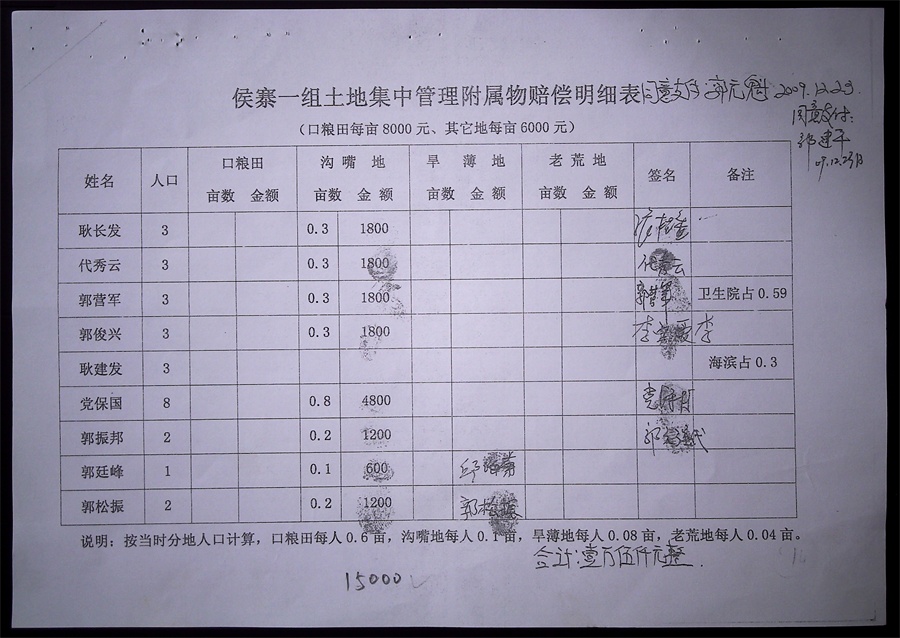 侯寨一组土地集中管理附属物赔偿明细表 同意支付 郭元魁 2009.12.23.
同意支付:
郭建平
09.12.23日
(口粮田每亩8000元、其它地每亩6000元)
姓名 人口 口粮田 沟嘴地 旱薄地 老荒地 签名 备注
亩数 金额 亩数 金额 亩数 金额 亩数 金额
耿长发 3 0.3 1800
代秀云 3 0.3 1800 代秀云
郭营军 3 0.3 1800 郭营军 卫生院占0.59
郭俊兴 3 0.3 1800
耿建发 3 海滨占0.3
党保国 8 0.8 4800
郭振邦 2 0.2 1200
郭廷峰 1 0.1 600
郭松振 2 0.2 1200 郭松振
说明:按当时分地人口计算,口粮田每人0.6亩,沟嘴地每人0.1亩,旱薄地每人0.08亩,老荒地每人0.04亩。
合计:壹万伍仟元整.
15000